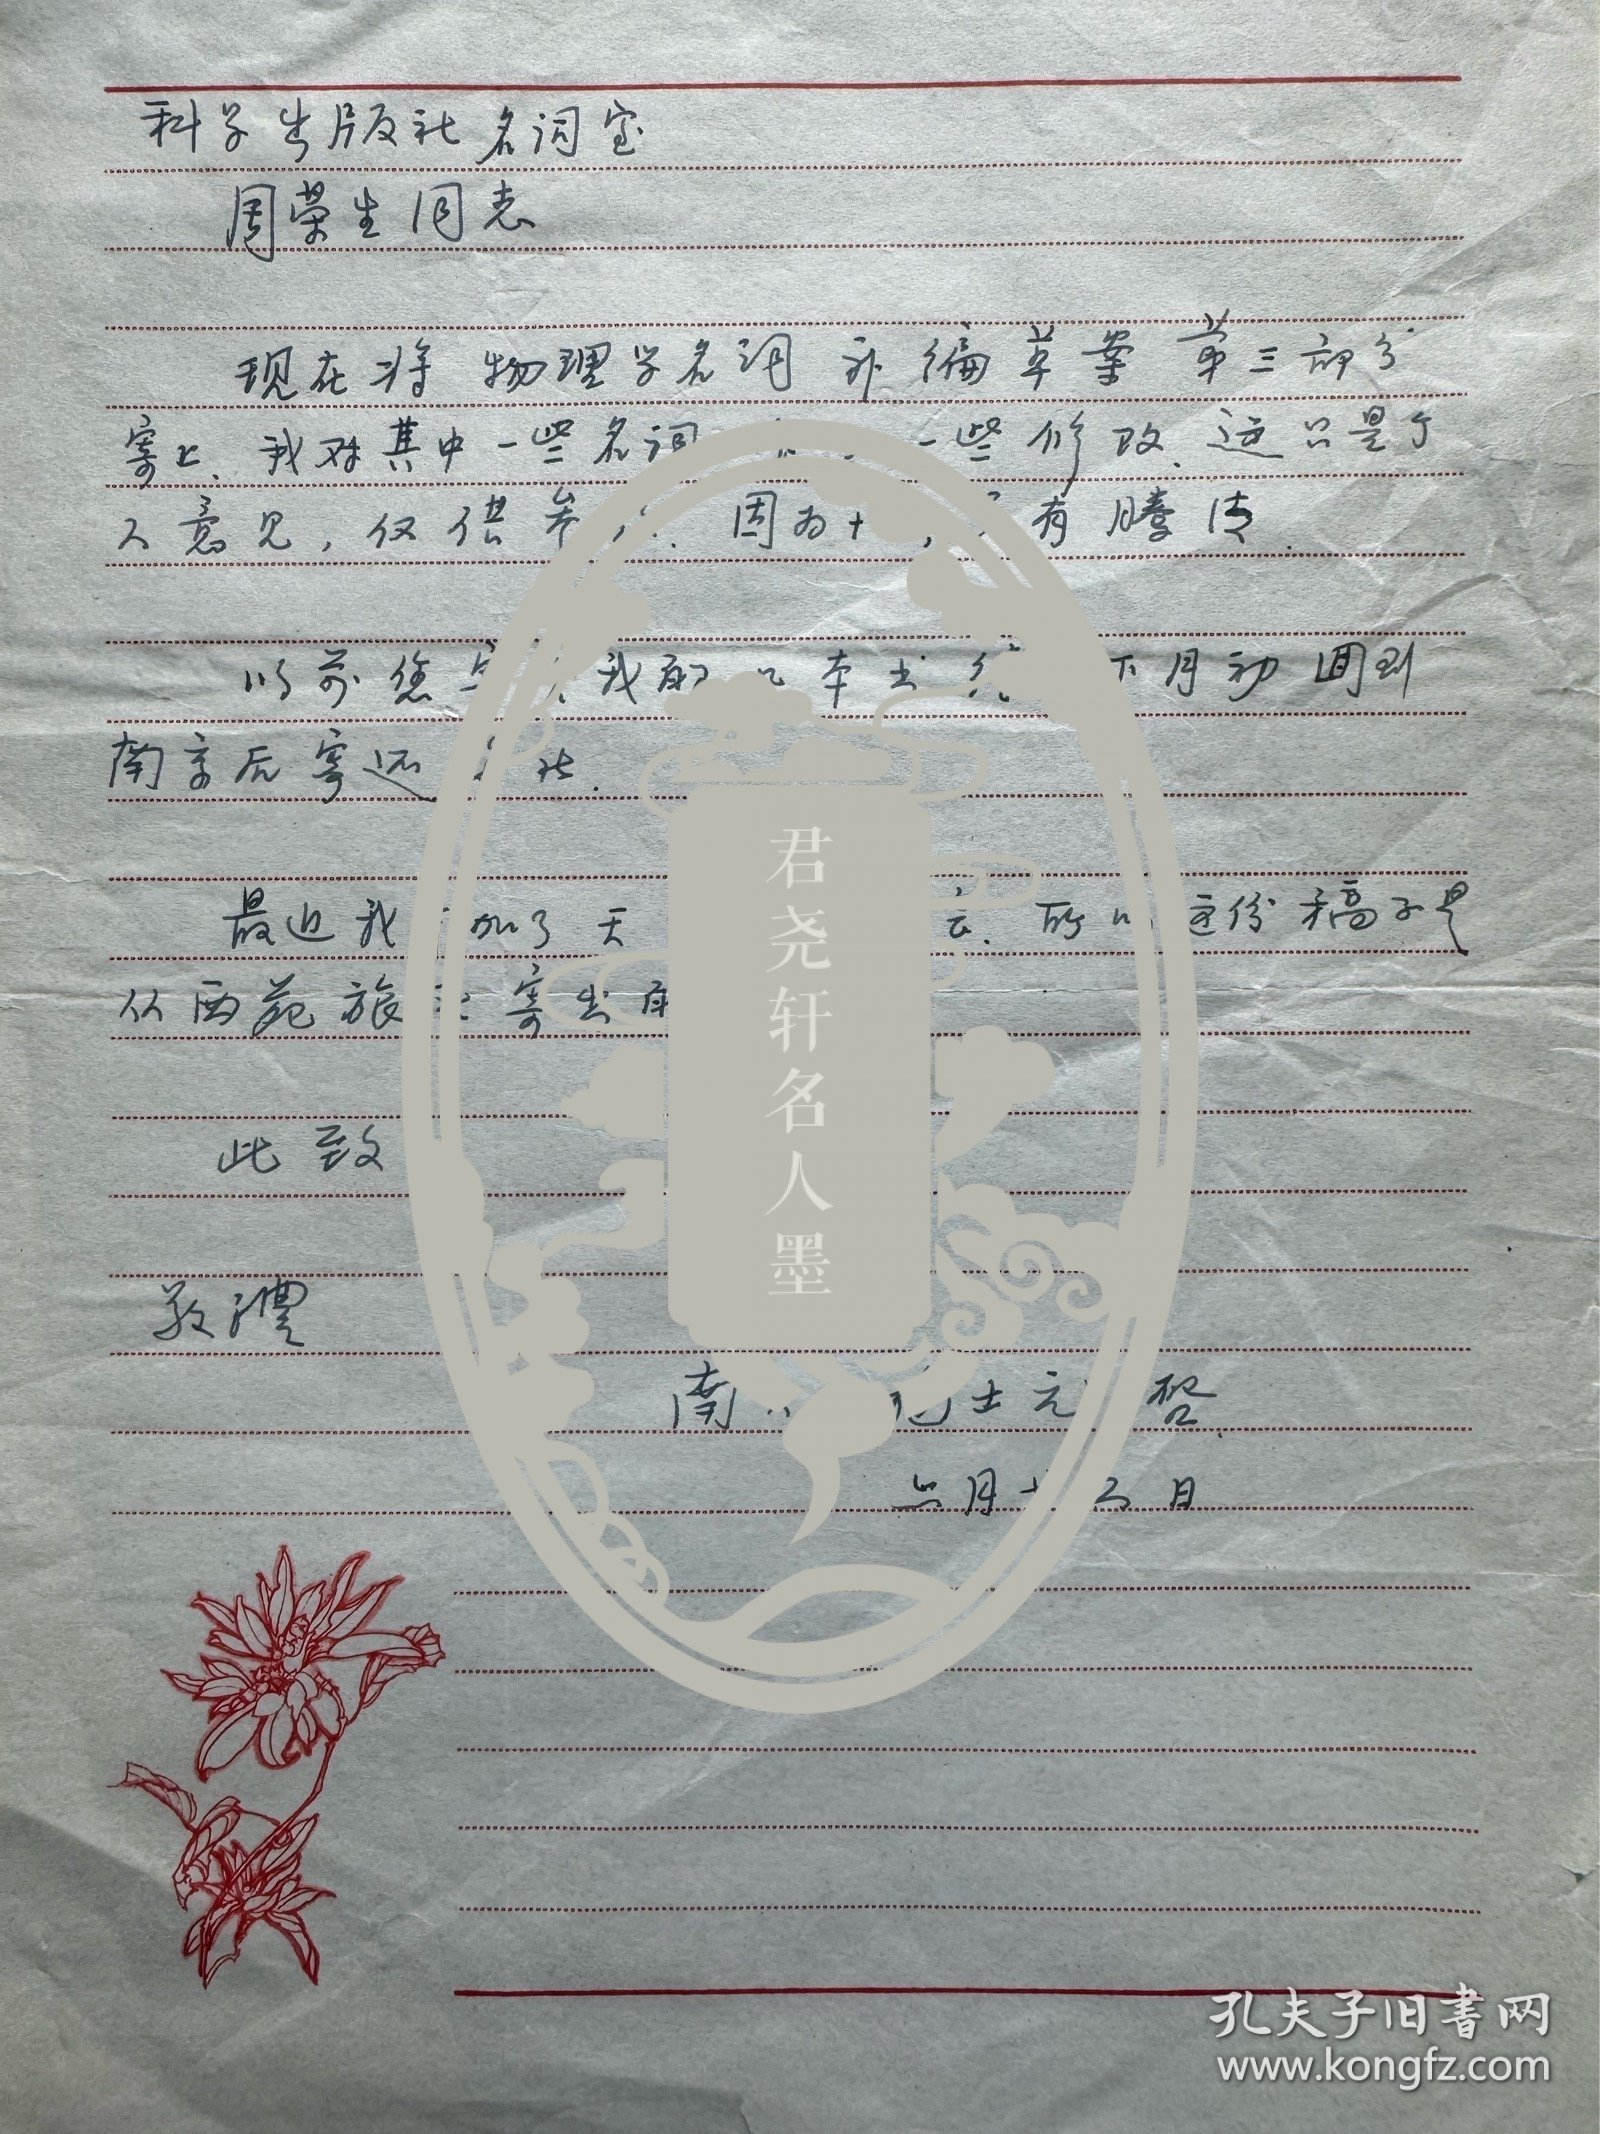 科学出版社名词室
周荣生同志
现在将 物理学名词 补编草案 第三部分
寄上. 我对其中一些名词 一些修改. 这只是个
人意见, 仅供参 因为 有腾清.
以前您 我的 本书 下月初回到
南京后寄还 社.
最近我 加了天 所以这份稿子是
从西苑旅 寄出的
此致
敬礼
南 士元 启
六月 日
君尧轩名人墨
孔夫子旧书网
www.kongfz.com